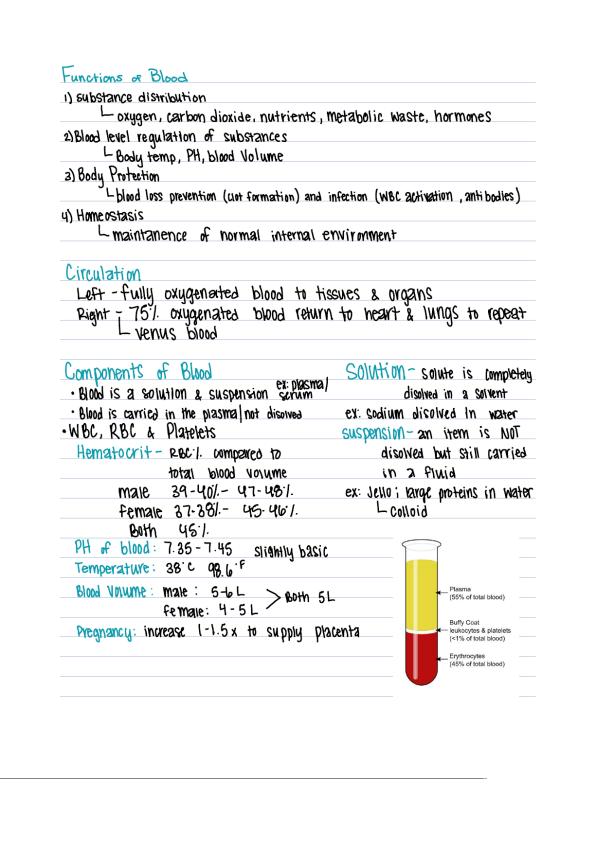 Functions of Blood
1) substance distribution
oxygen, carbon dioxide, nutrients, metabolic waste, hormones
2) Blood level regulation of substances
Body temp, PH, blood Volume
3) Body Protection
blood loss prevention (clot formation) and infection (WBC activation, antibodies)
4) Homeostasis
maintanence of normal internal environment
Circulation
Left - fully oxygenated blood to tissues & organs
Right - 75% oxygenated blood return to heart & lungs to repeat
venus blood
Components of Blood
• Blood is a solution & suspension ex: plasma/serum
• Blood is carried in the plasma/not disolved
• WBC, RBC & Platelets
Hematocrit - RBC% compared to
total blood volume
male 39-40% - 47-48%
female 37-38% - 45-46%
Both 45%
PH of blood: 7.35 - 7.45 slightly basic
Temperature: 38°C 98.6°F
Blood Volume: male: 5-6 L
female: 4-5 L > Both 5L
Pregnancy: increase 1-1.5x to supply placenta
Solution - solute is completely
disolved in a solvent
ex: sodium disolved in water
suspension - an item is NOT
disolved but still carried
in a fluid
ex: Jello; large proteins in water
Colloid
Plasma
(55% of total blood)
Buffy Coat
leukocytes & platelets
(<1% of total blood)
Erythrocytes
(45% of total blood)